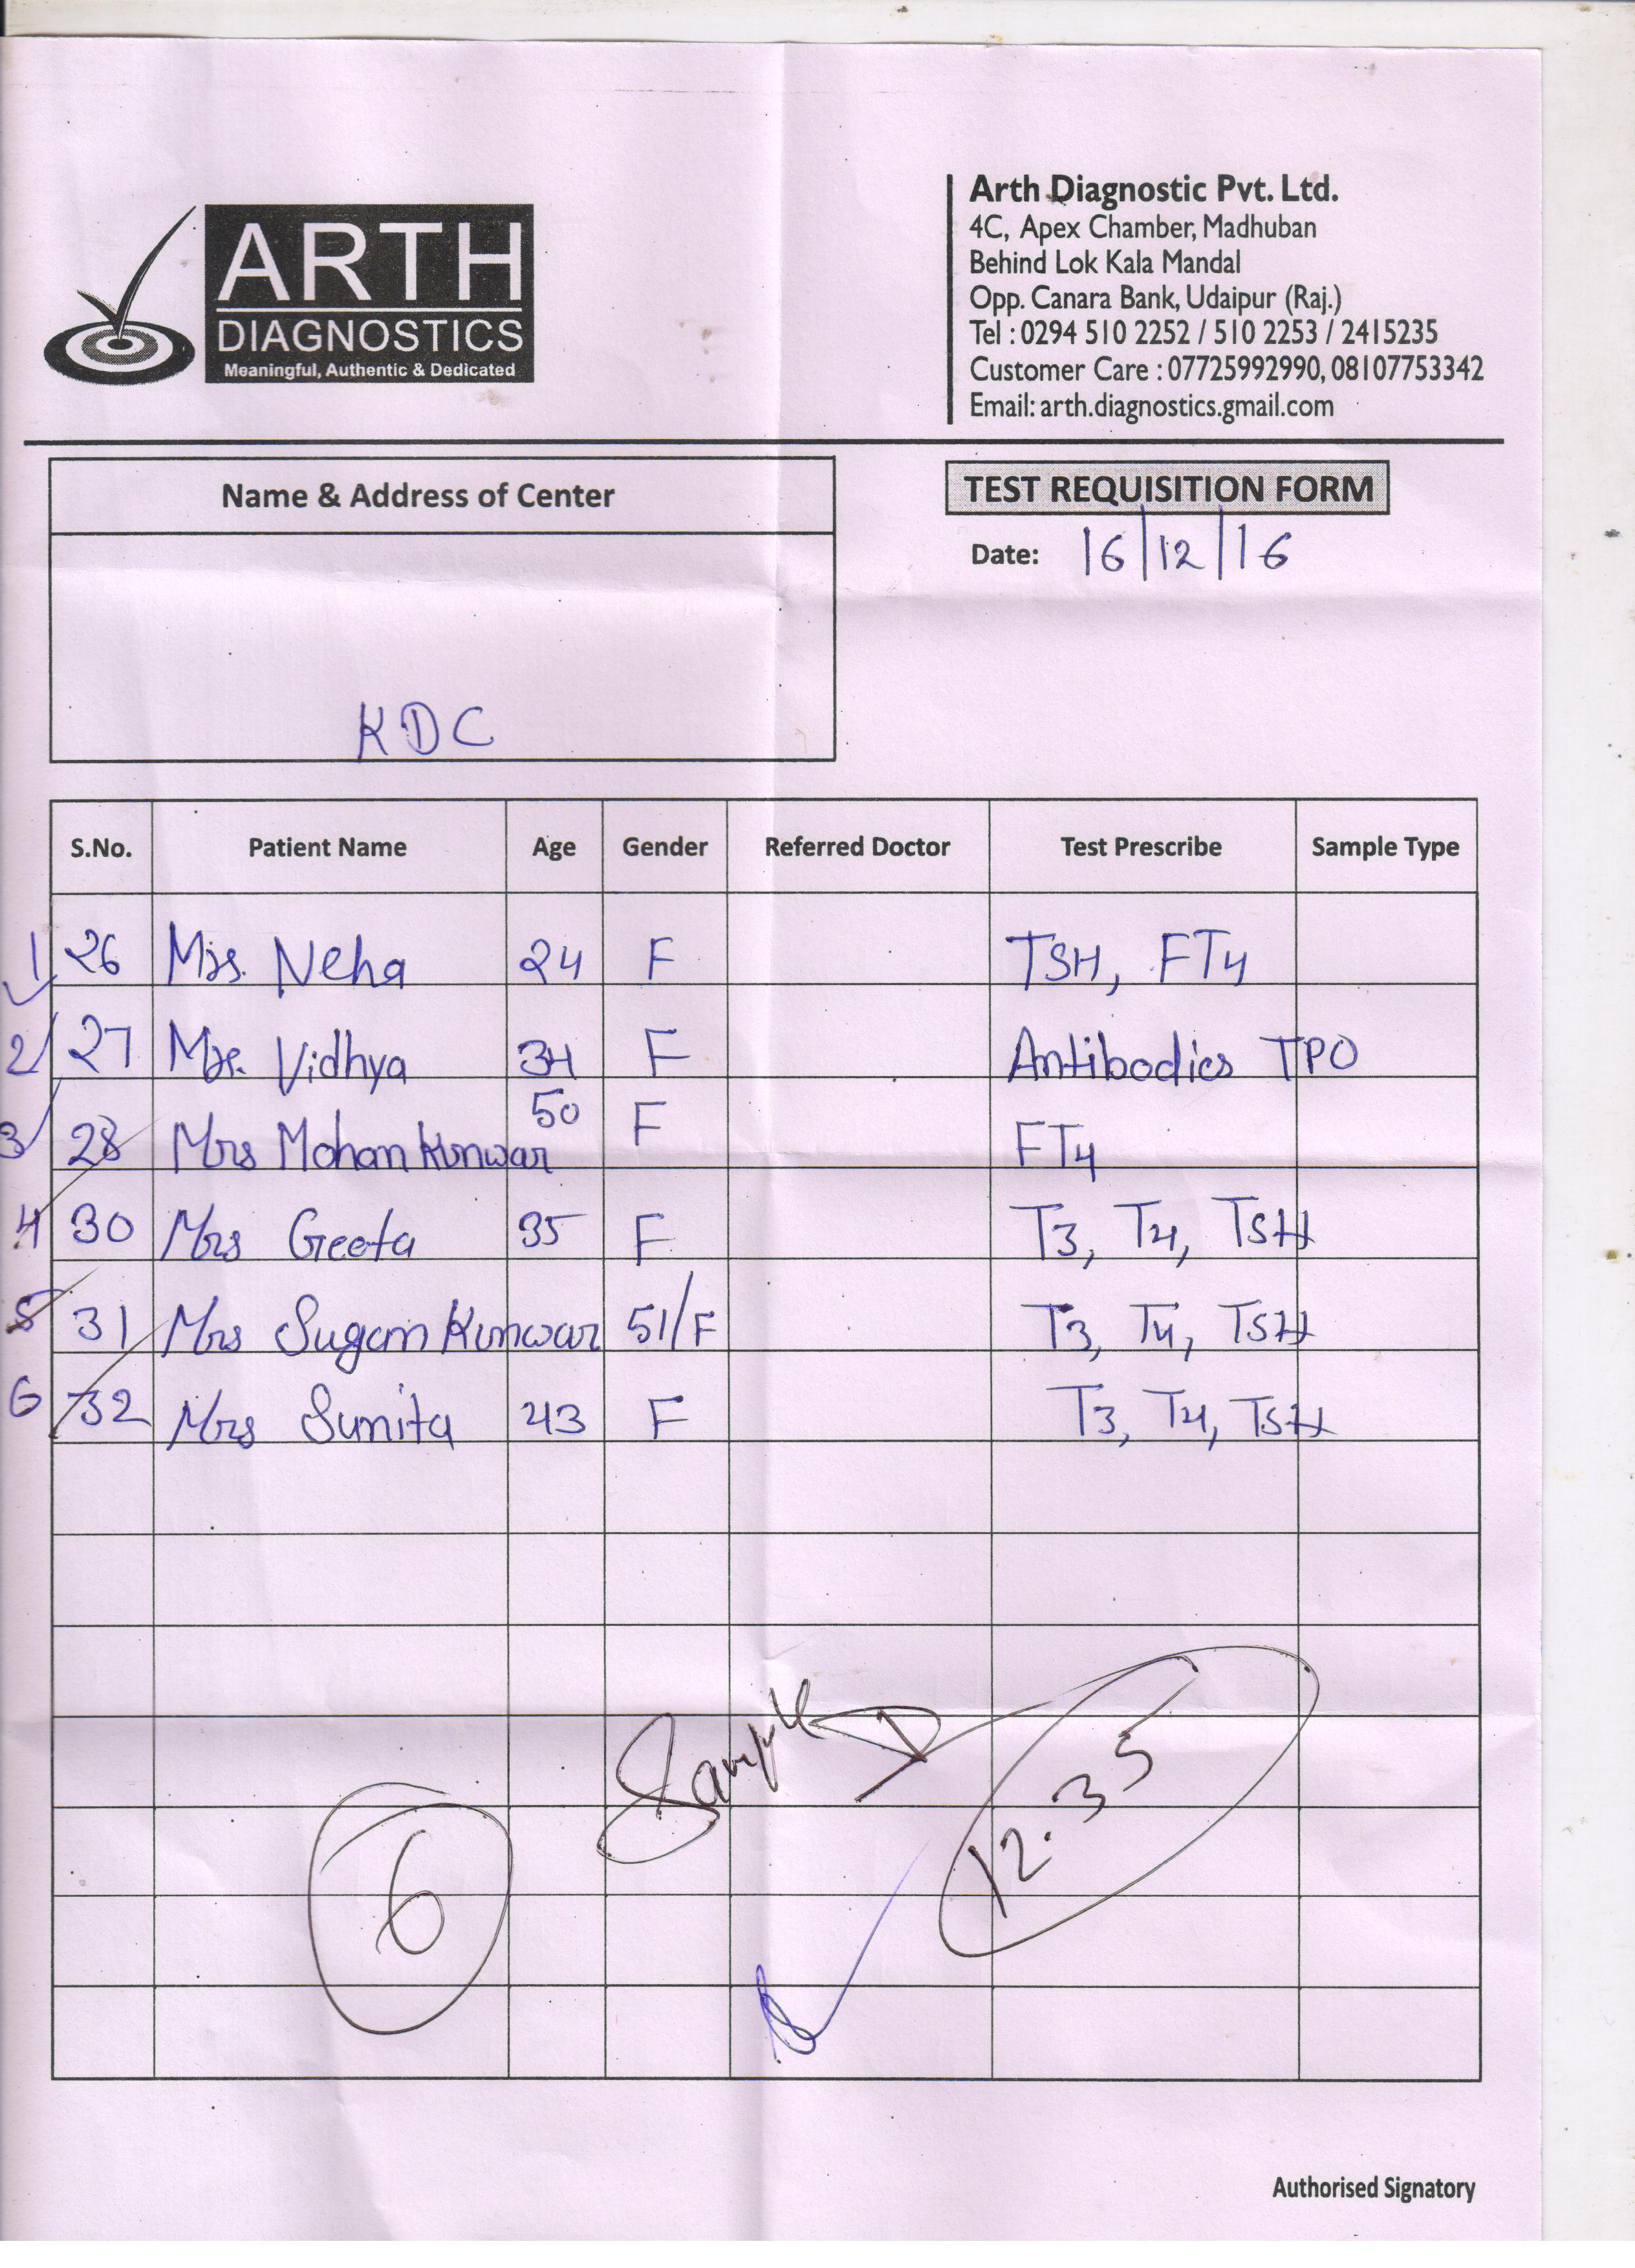 ARTH
DIAGNOSTICS
Meaningful, Authentic & Dedicated
Arth Diagnostic Pvt. Ltd.
4C, Apex Chamber, Madhuban
Behind Lok Kala Mandal
Opp. Canara Bank, Udaipur (Raj.)
Tel : 0294 510 2252 / 510 2253 / 2415235
Customer Care : 07725992990, 08107753342
Email: arth.diagnostics.gmail.com
Name & Address of Center
KDC
TEST REQUISITION FORM
Date: 16/12/16
S.No. Patient Name Age Gender Referred Doctor Test Prescribe Sample Type
1 26 Mrs. Neha 24 F TSH, FT4
2 27 Mrs. Vidhya 34 F Antibodies TPO
3 28 Mrs Mohan Kunwar 50 F FT4
4 30 Mrs Geeta 35 F T3, T4, TSH
5 31 Mrs Sugan Kunwar 51/F T3, T4, TSH
6 32 Mrs Sunita 43 F T3, T4, TSH
Sample
12.35
6
Authorised Signatory